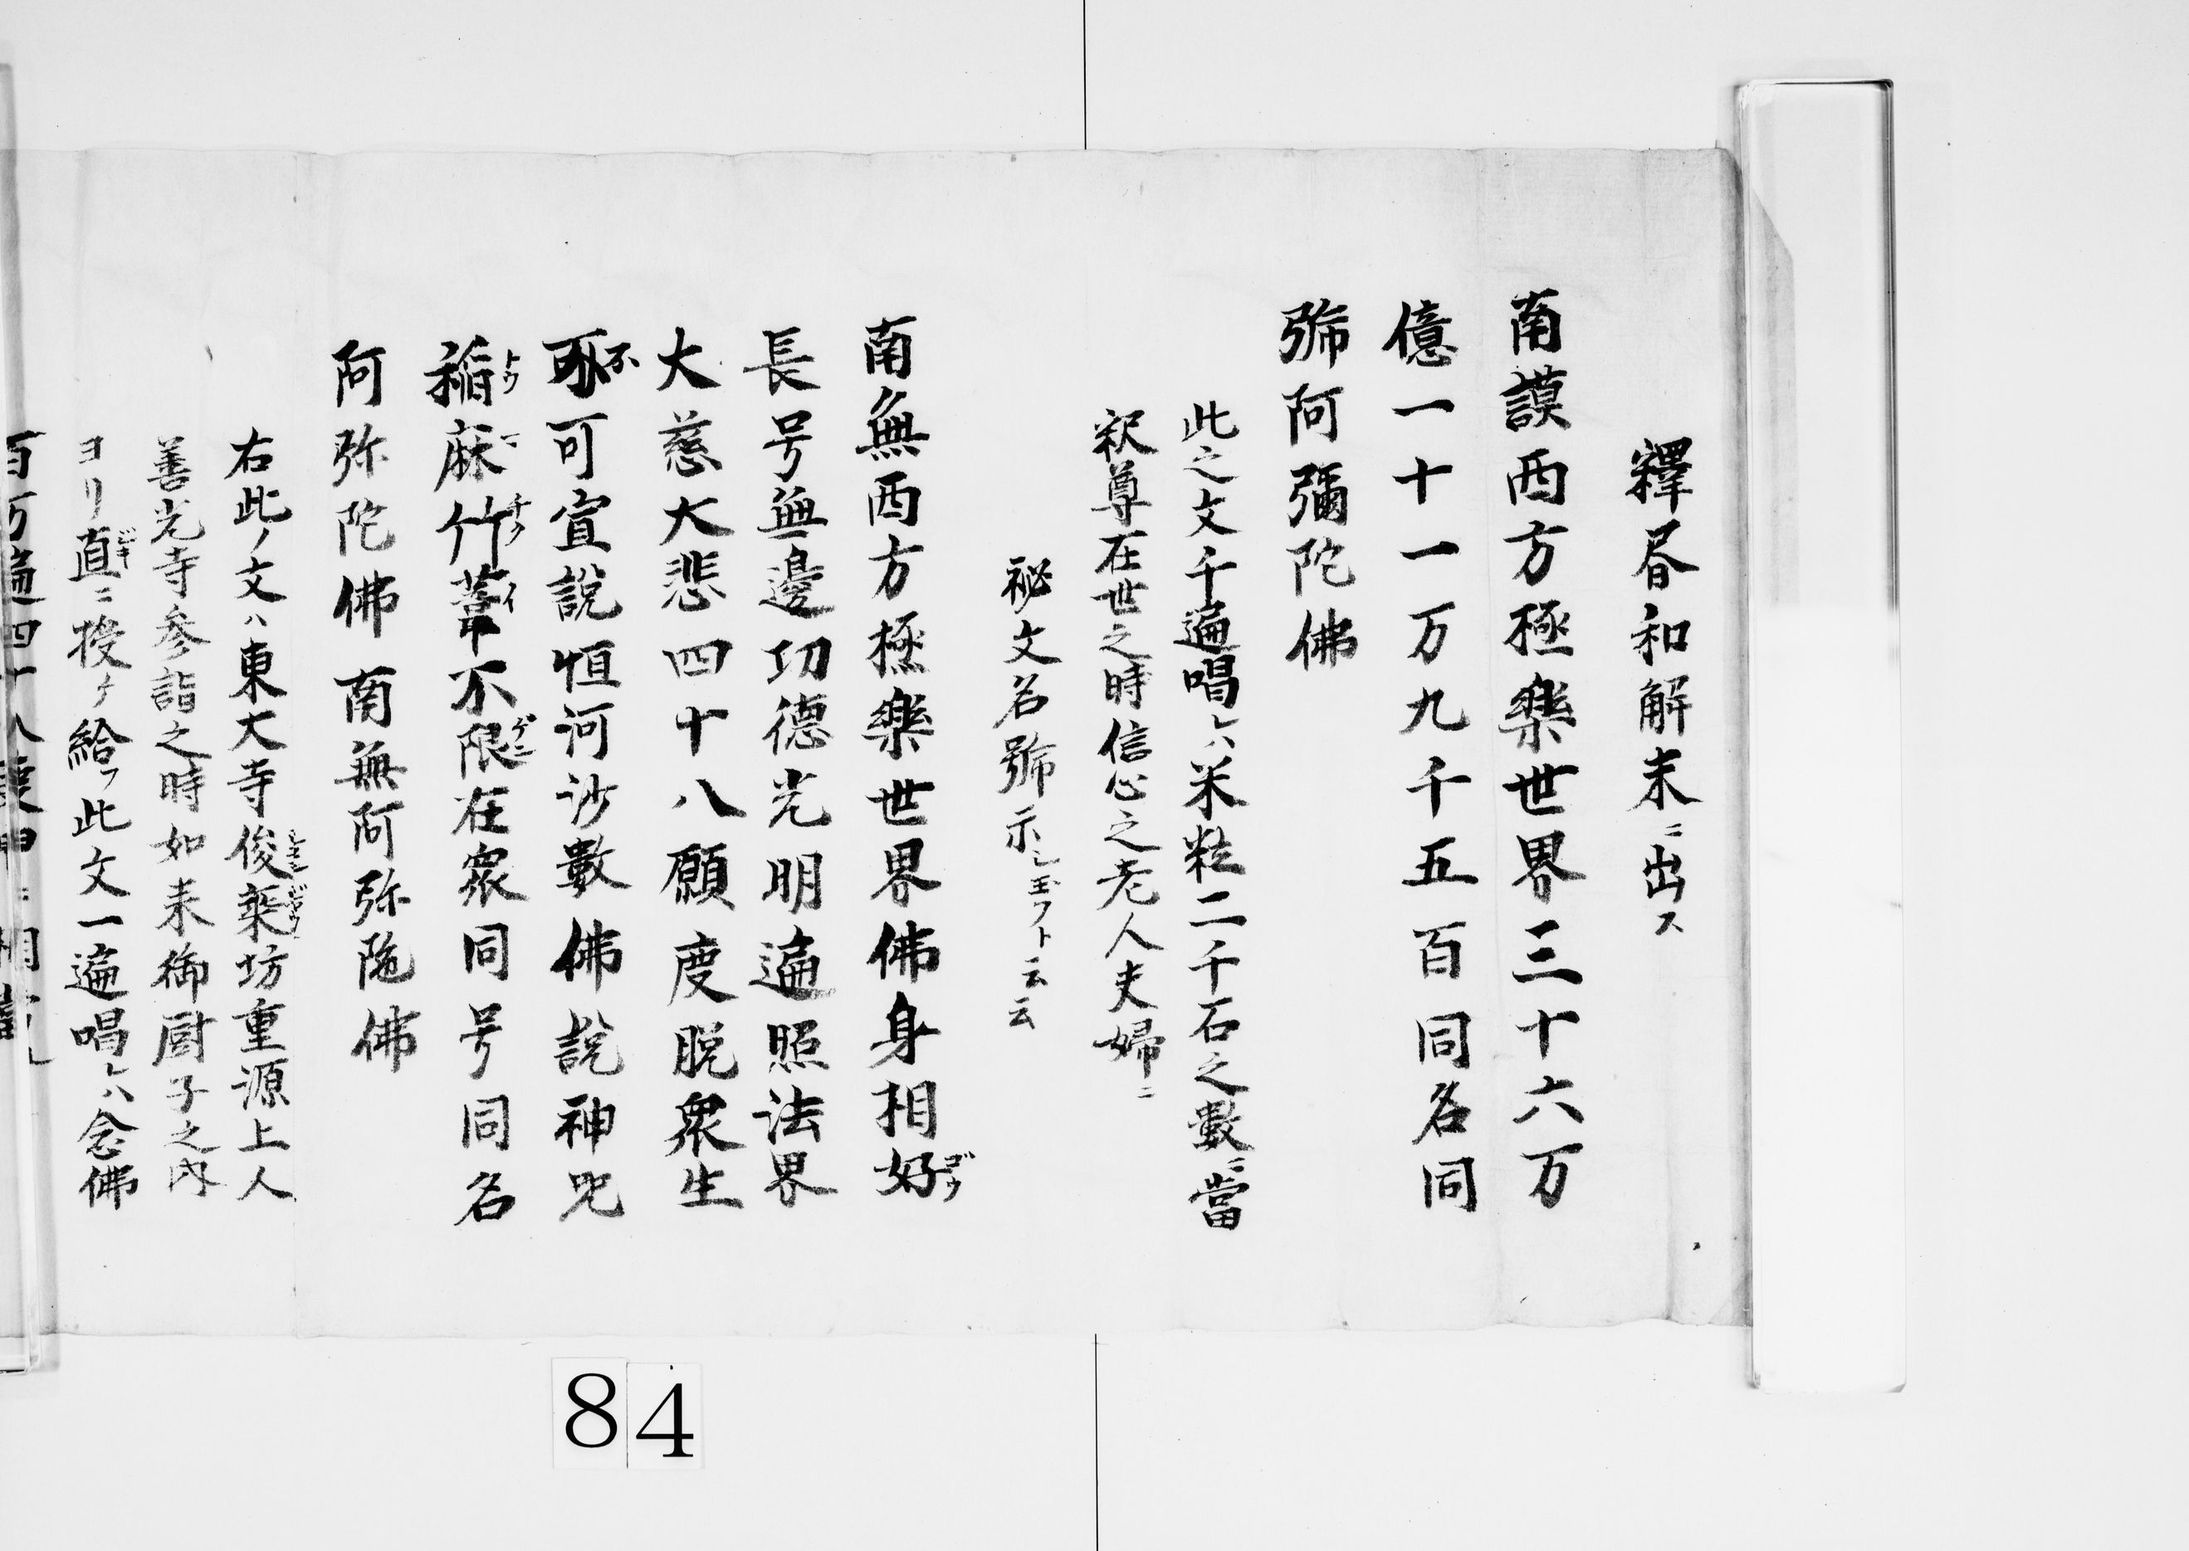 釋昬和解末ニ出ス
南謨西方極樂世界三十六万
億一十一万九千五百同名同
號阿彌陀佛
此之文千遍唱レハ米粒二千石之數ニ當
釈尊在世之時信心之老人夫婦ニ
秘文名號示シ玉フト云云
南無西方極樂世界佛身相好
長号無邊功德光明遍照法界
大慈大悲四十八願度脱衆生
不可宣說恒河沙數佛說神呪
稲麻竹葦不限在衆同号同名
阿弥陀佛南無阿弥陀佛
右此ノ文ハ東大寺俊乗坊重源上人
善光寺参詣之時如来御厨子之内
ヨリ直ニ授ケ給フ此文一遍唱レハ念佛
百万遍四十八
84